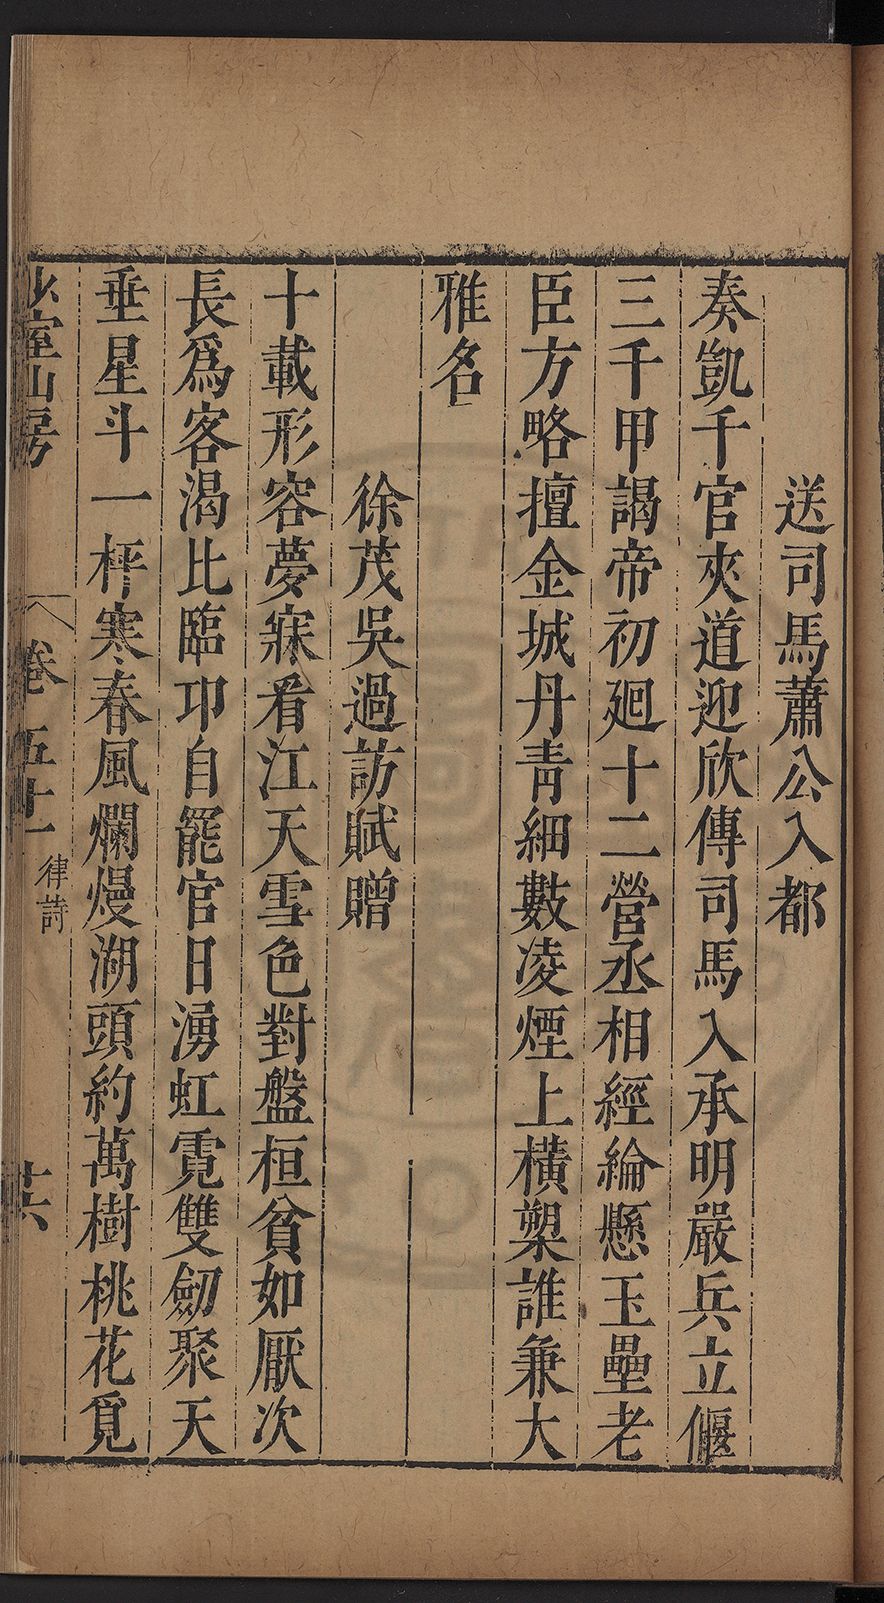 送司馬蕭公入都
奏凱千官夾道迎欣傳司馬入承明嚴兵立偃
三千甲謁帝初廻十二營丞相經綸懸玉壘老
臣方略擅金城丹青細數凌煙上橫槊誰兼大
雅名
徐茂吳過訪賦贈
十載形容夢寐看江天雪色對盤桓貧如厭次
長爲客渴比臨邛自罷官日湧虹霓雙劒聚天
垂星斗一枰寒春風爛熳湖頭約萬樹桃花覓
少室山房
卷五十一
律詩
十六